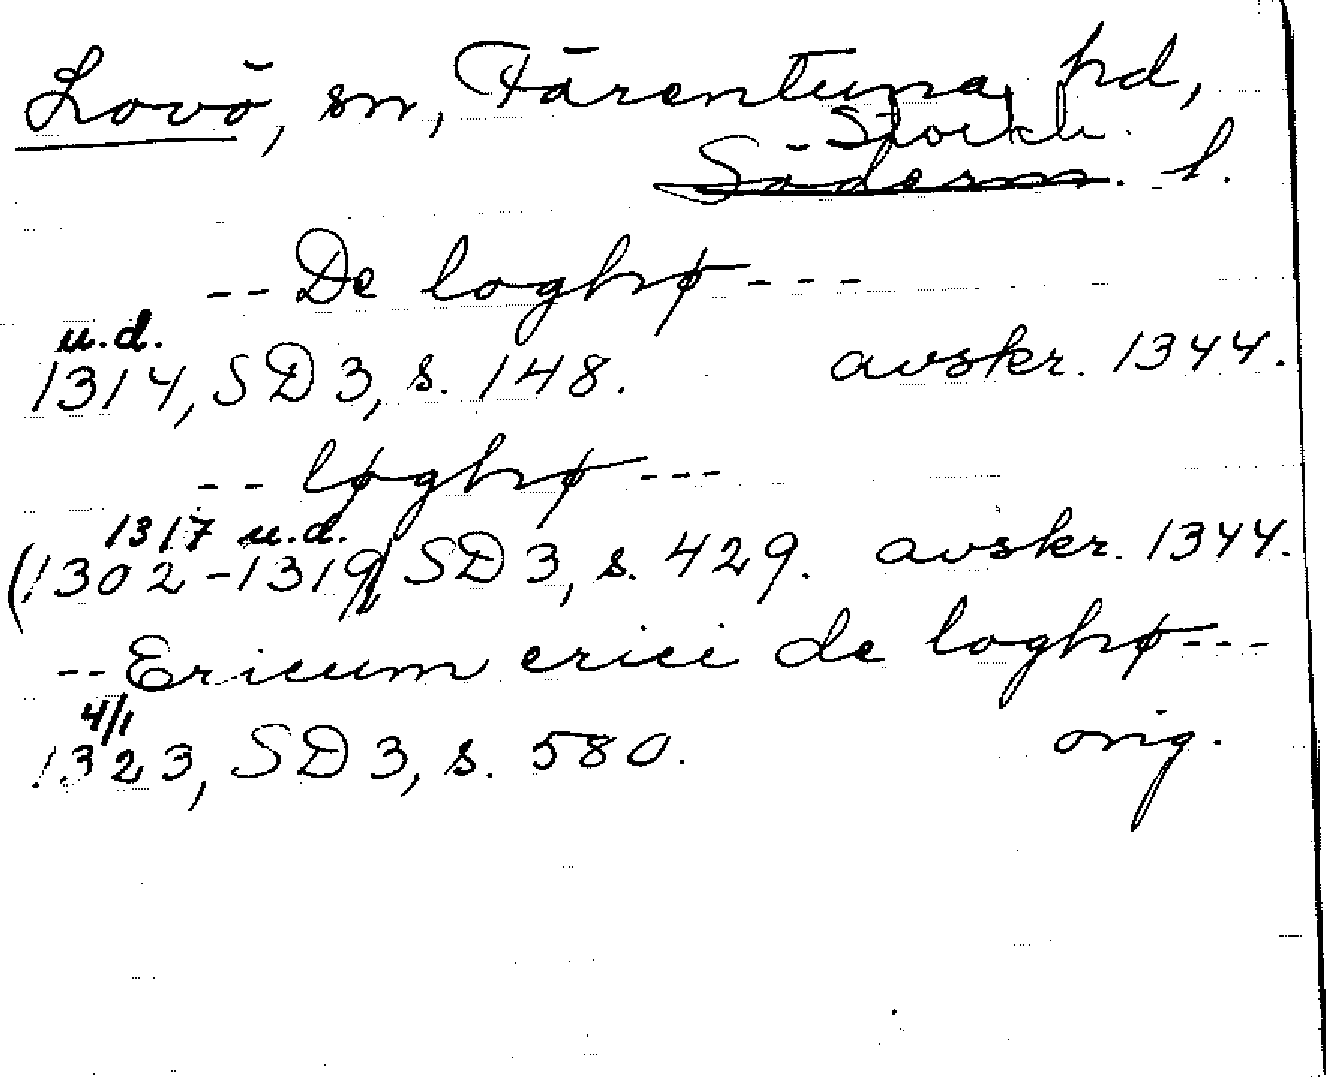 Lovö, sn, Färentuna hd,
Stockh.
Söderm. l.
-- De loghø ---
u.d.
1314, SD 3, s. 148. avskr. 1344.
-- løghø ---
1317 u.d.
(1302-1319) SD 3, s. 429. avskr. 1344.
-- Ericum erici de loghø ---
4/1
1323, SD 3, s. 580. orig.